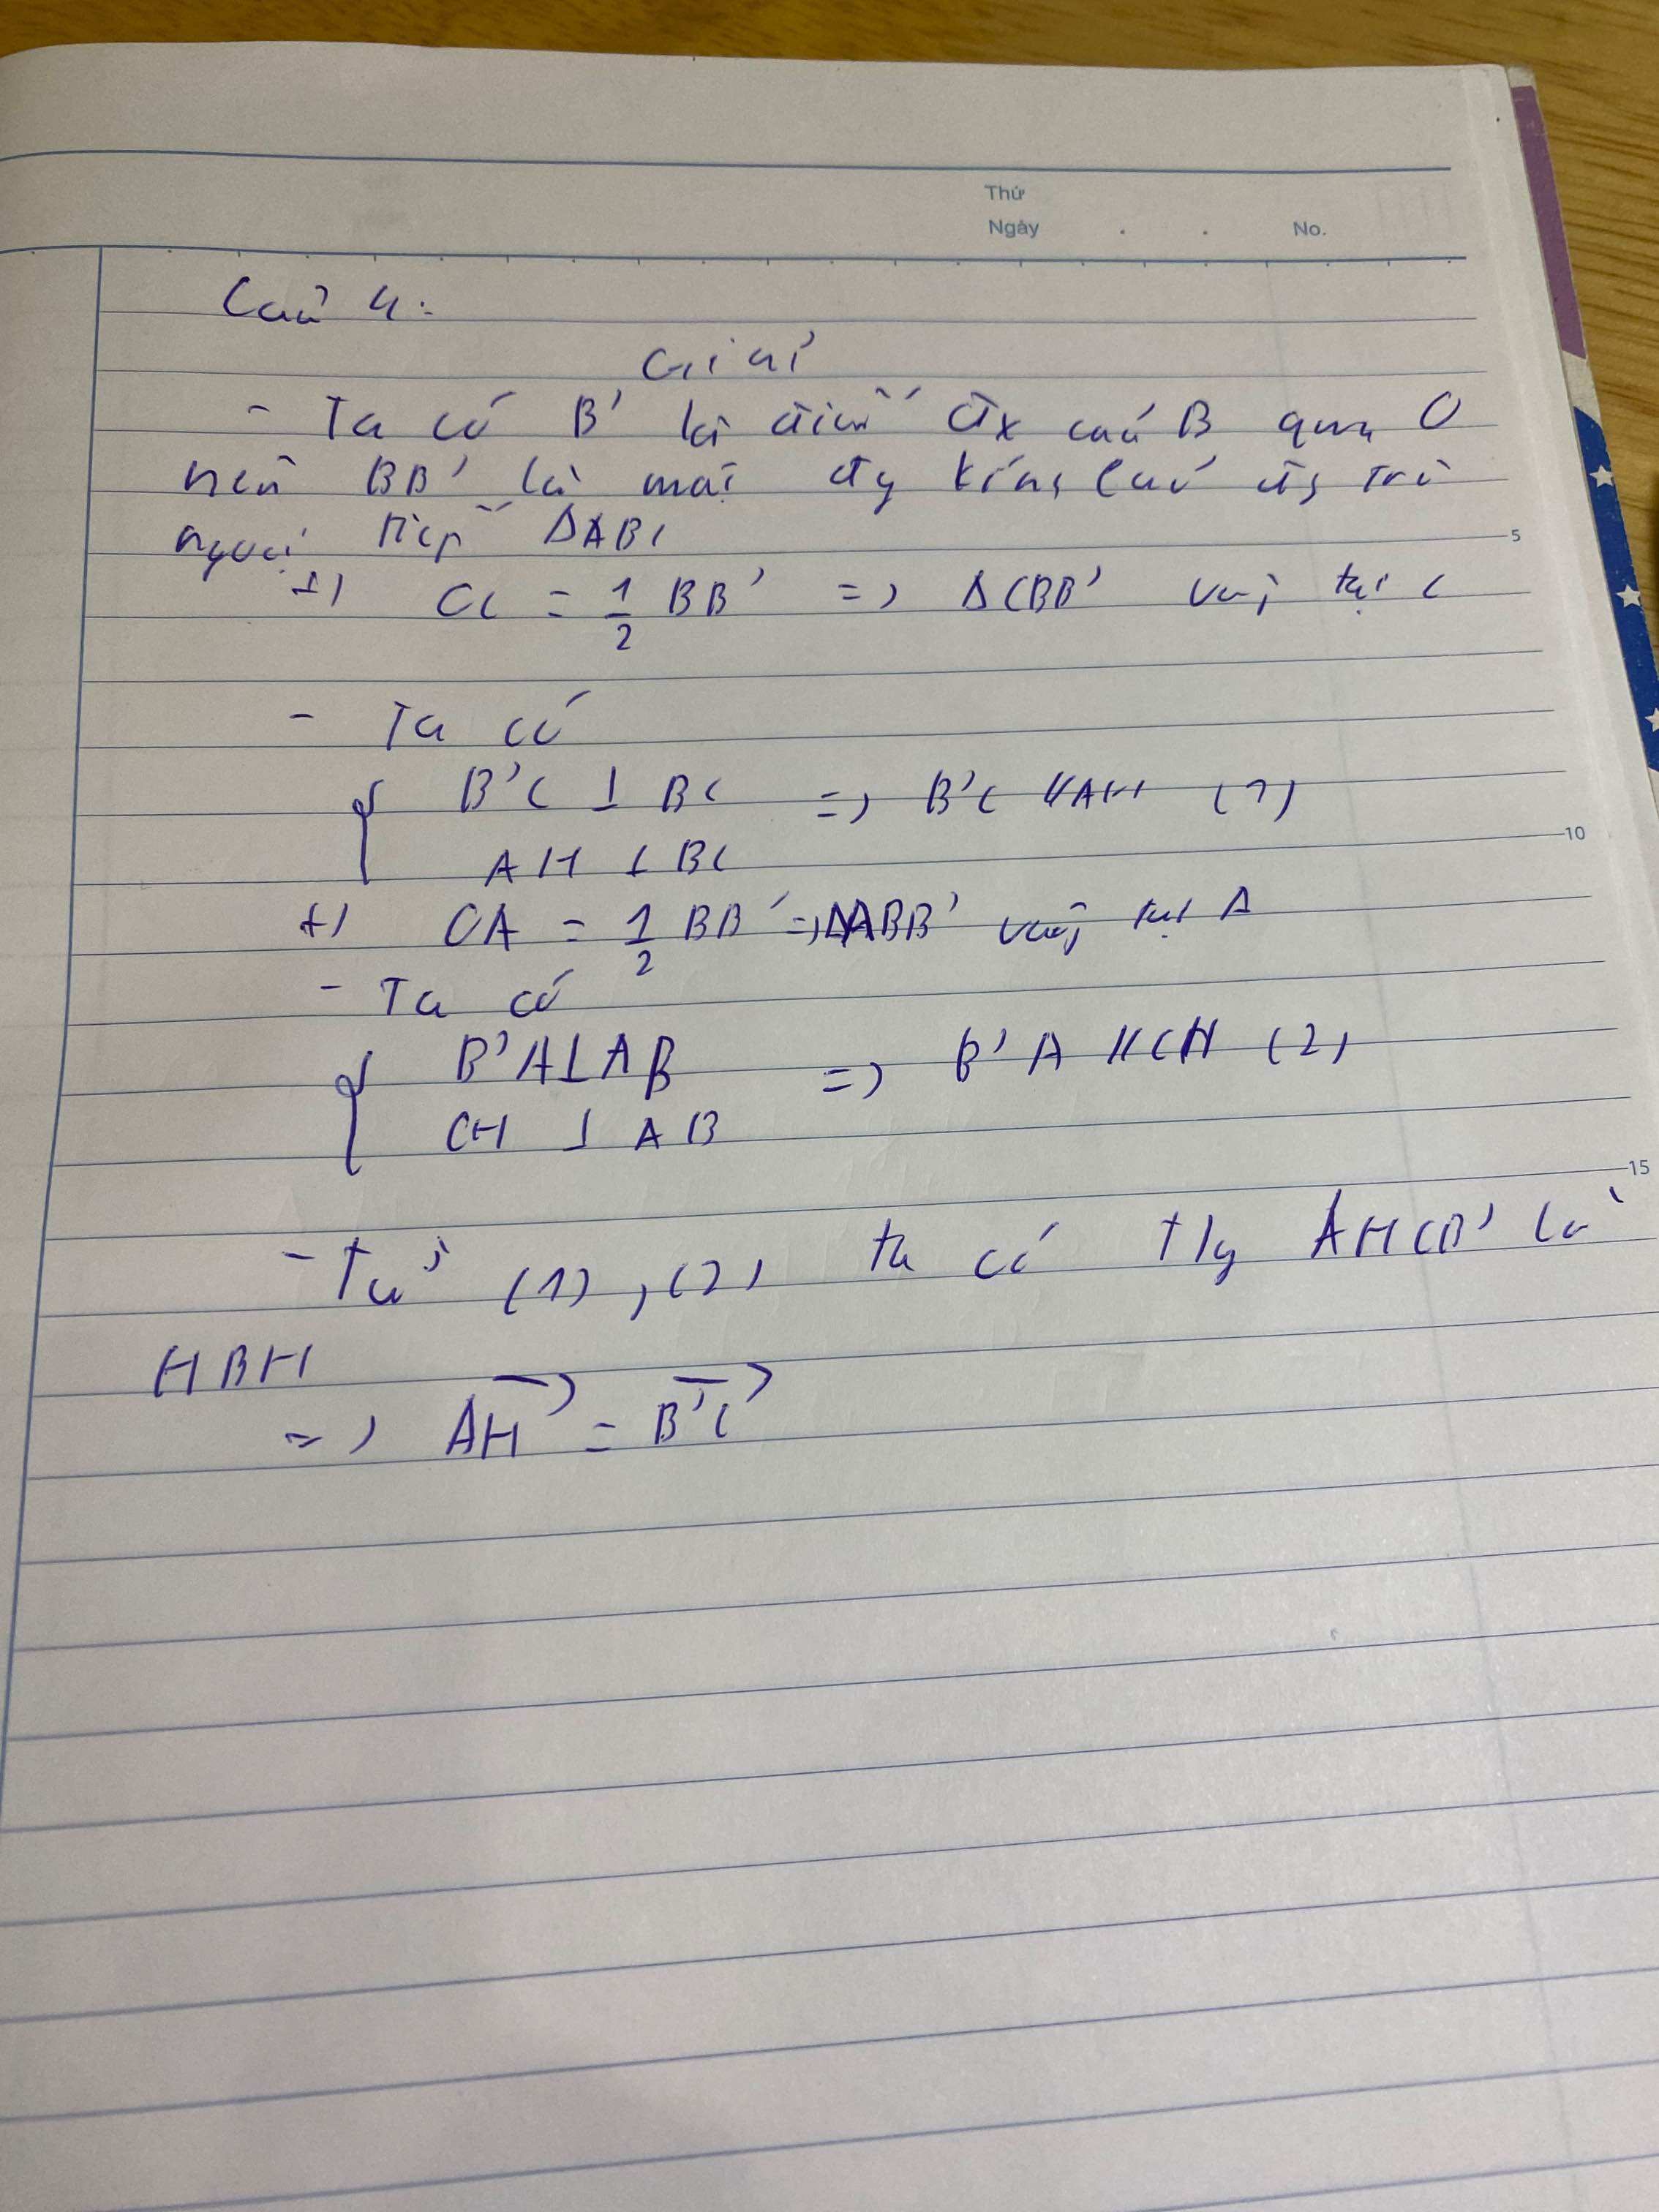 Thứ
Ngày . . No.
Câu 4:
Giải
- Ta có B' là điểm đx của B qua O
nên BB' là một đg kính của đg trò
ngoại tiếp ΔABC
+) OC = 1/2 BB' => ΔCBB' vuô tại C
5
- Ta có
{ B'C ⊥ BC => B'C // AH (1)
AH ⊥ BC
10
+) OA = 1/2 BB' => ΔABB' vuô tại A
- Ta có
{ B'A ⊥ AB => B'A // CH (2)
CH ⊥ AB
15
- Từ (1), (2) ta có tg AHCB' là
HBH
=> \overrightarrow{AH} = \overrightarrow{B'C}